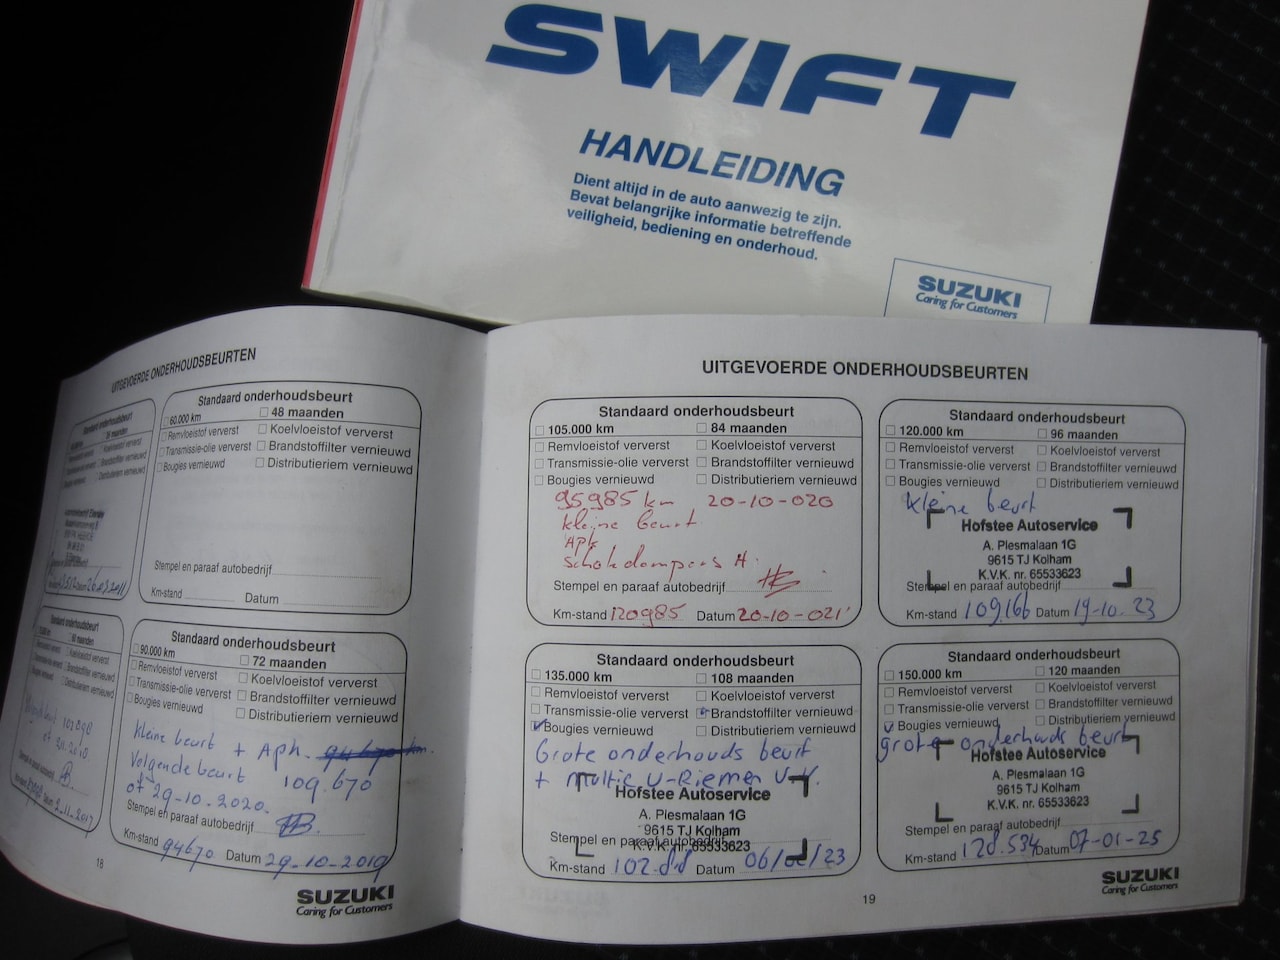 SWIFT
HANDLEIDING
Dient altijd in de auto aanwezig te zijn.
Bevat belangrijke informatie betreffende
veiligheid, bediening en onderhoud.
SUZUKI
Caring for Customers
UITGEVOERDE ONDERHOUDSBEURTEN
Standaard onderhoudsbeurt
Standaard onderhoudsbeurt
60.000 km 48 maanden
Remvloeistof ververst Koelvloeistof ververst
Transmissie-olie ververst Brandstoffilter vernieuwd
Bougies vernieuwd Distributieriem vernieuwd
Stempel en paraaf autobedrijf
Km-stand Datum
Standaard onderhoudsbeurt
90.000 km 72 maanden
Remvloeistof ververst Koelvloeistof ververst
Transmissie-olie ververst Brandstoffilter vernieuwd
Bougies vernieuwd Distributieriem vernieuwd
kleine beurt + Apk.
Volgende beurt 109.670
of 29-10-2020.
Stempel en paraaf autobedrijf
Km-stand 94670 Datum 29-10-2019
18
SUZUKI
Caring for Customers
UITGEVOERDE ONDERHOUDSBEURTEN
Standaard onderhoudsbeurt
105.000 km 84 maanden
Remvloeistof ververst Koelvloeistof ververst
Transmissie-olie ververst Brandstoffilter vernieuwd
Bougies vernieuwd Distributieriem vernieuwd
95985 km 20-10-020
kleine beurt
Apk
Schokdempers A.
Stempel en paraaf autobedrijf
Km-stand 120985 Datum 20-10-021
Standaard onderhoudsbeurt
120.000 km 96 maanden
Remvloeistof ververst Koelvloeistof ververst
Transmissie-olie ververst Brandstoffilter vernieuwd
Bougies vernieuwd Distributieriem vernieuwd
kleine beurt
Hofstee Autoservice
A. Plesmalaan 1G
9615 TJ Kolham
K.V.K. nr. 65533623
Stempel en paraaf autobedrijf
Km-stand 109.166 Datum 19-10-23
Standaard onderhoudsbeurt
135.000 km 108 maanden
Remvloeistof ververst Koelvloeistof ververst
Transmissie-olie ververst Brandstoffilter vernieuwd
Bougies vernieuwd Distributieriem vernieuwd
Grote onderhouds beurt
+ multie V-Riemen V.V.
Hofstee Autoservice
A. Plesmalaan 1G
9615 TJ Kolham
Stempel en paraaf autobedrijf
K.V.K. nr. 65533623
Km-stand Datum
Standaard onderhoudsbeurt
150.000 km 120 maanden
Remvloeistof ververst Koelvloeistof ververst
Transmissie-olie ververst Brandstoffilter vernieuwd
Bougies vernieuwd Distributieriem vernieuwd
grote onderhouds beurt
Hofstee Autoservice
A. Plesmalaan 1G
9615 TJ Kolham
K.V.K. nr. 65533623
Stempel en paraaf autobedrijf
Km-stand 128.534 Datum 07-01-25
19
SUZUKI
Caring for Customers